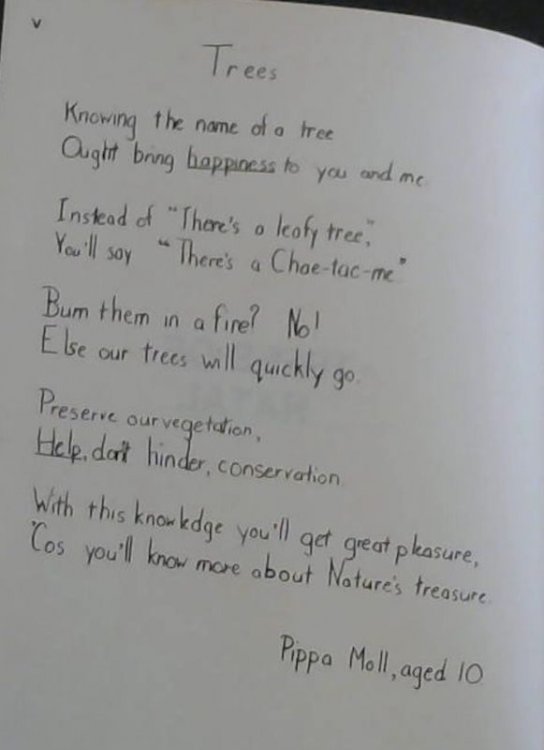 v
Trees
Knowing the name of a tree
Ought bring happiness to you and me.
Instead of "There's a leafy tree",
You'll say "There's a Chae-tac-me"
Burn them in a fire? No!
Else our trees will quickly go.
Preserve our vegetation,
Help, don't hinder, conservation.
With this knowledge you'll get great pleasure,
'Cos you'll know more about Nature's treasure.
Pippa Moll, aged 10